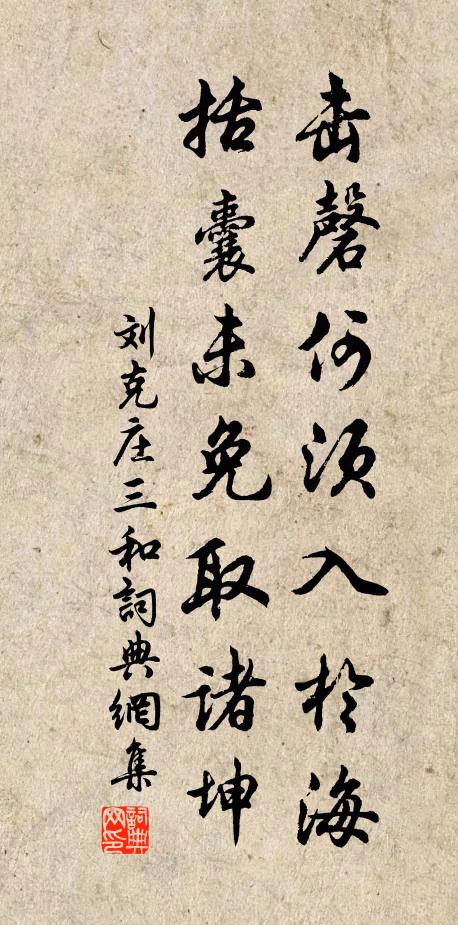 击磬何须入於海
括囊未免取诸坤
刘克庄三和詞典網集
詞典
网印